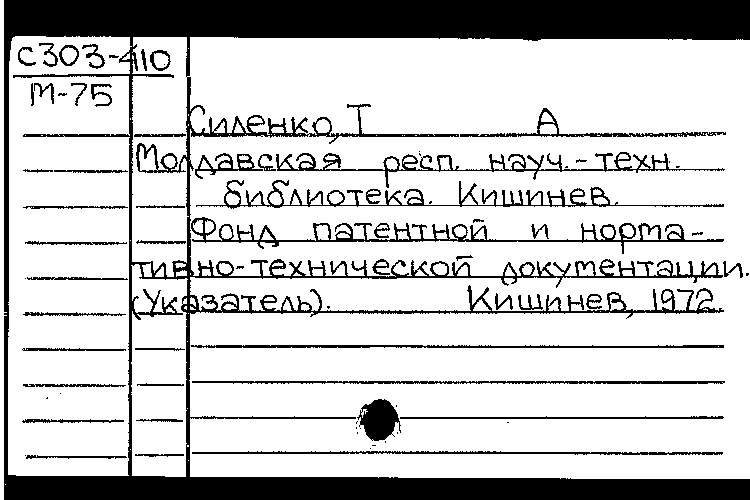 С303-410
М-75
Силенко, Т А
Молдавская респ. науч.-техн.
библиотека. Кишинев.
Фонд патентной и норма-
тивно-технической документации.
(Указатель). Кишинев, 1972.